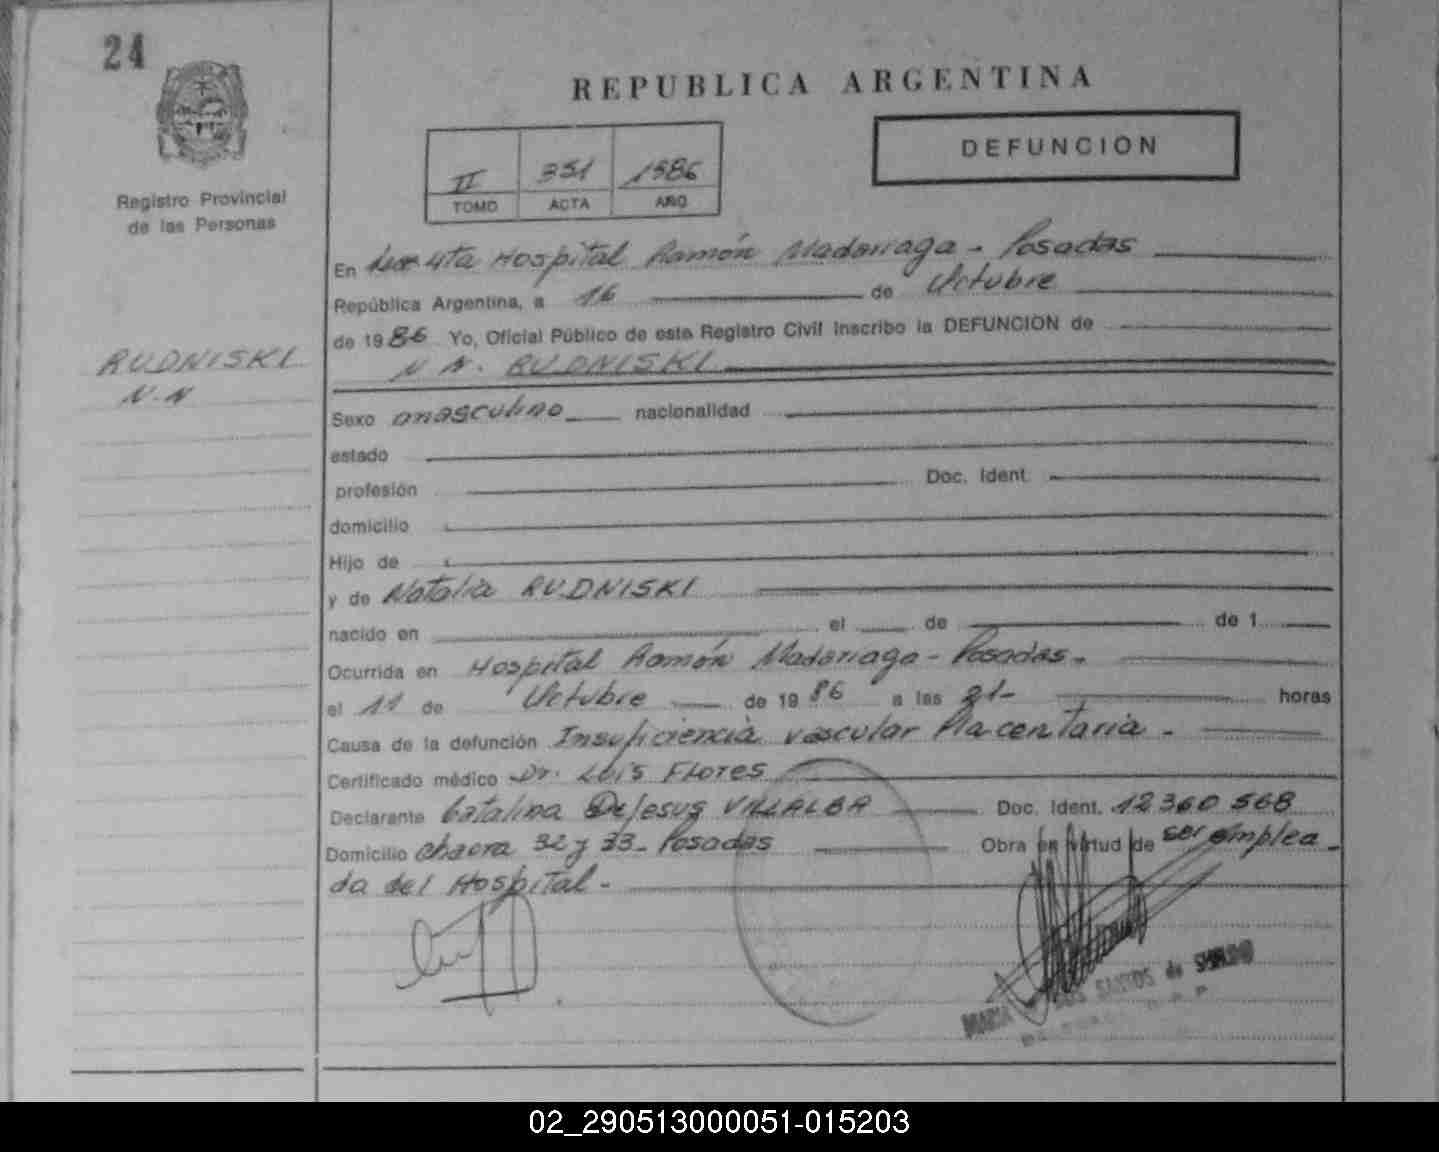 24
REPUBLICA ARGENTINA
DEFUNCION
II 351 1986
TOMO ACTA AÑO
Registro Provincial
de las Personas
En 4ta Hospital Ramón Madariaga - Posadas
República Argentina, a 16 de Octubre
de 1986 Yo, Oficial Público de este Registro Civil inscribo la DEFUNCION de
RUDNISKI
N.N
N N. RUDNISKI
Sexo masculino nacionalidad
estado
profesión Doc. Ident.
domicilio
Hijo de
y de Natalia RUDNISKI
nacido en el de de 1
Ocurrida en Hospital Ramón Madariaga - Posadas -
el 11 de Octubre de 1986 a las 21- horas
Causa de la defunción Insuficiencia vascular Placentaria -
Certificado médico Dr. Luis Flores
Declarante Catalina De Jesus VILLALBA Doc. Ident. 12360568
Domicilio chacra 32 y 33 - Posadas Obra en virtud de ser emplea-
da del Hospital -
MARIA DOS SANTOS de
02_290513000051-015203